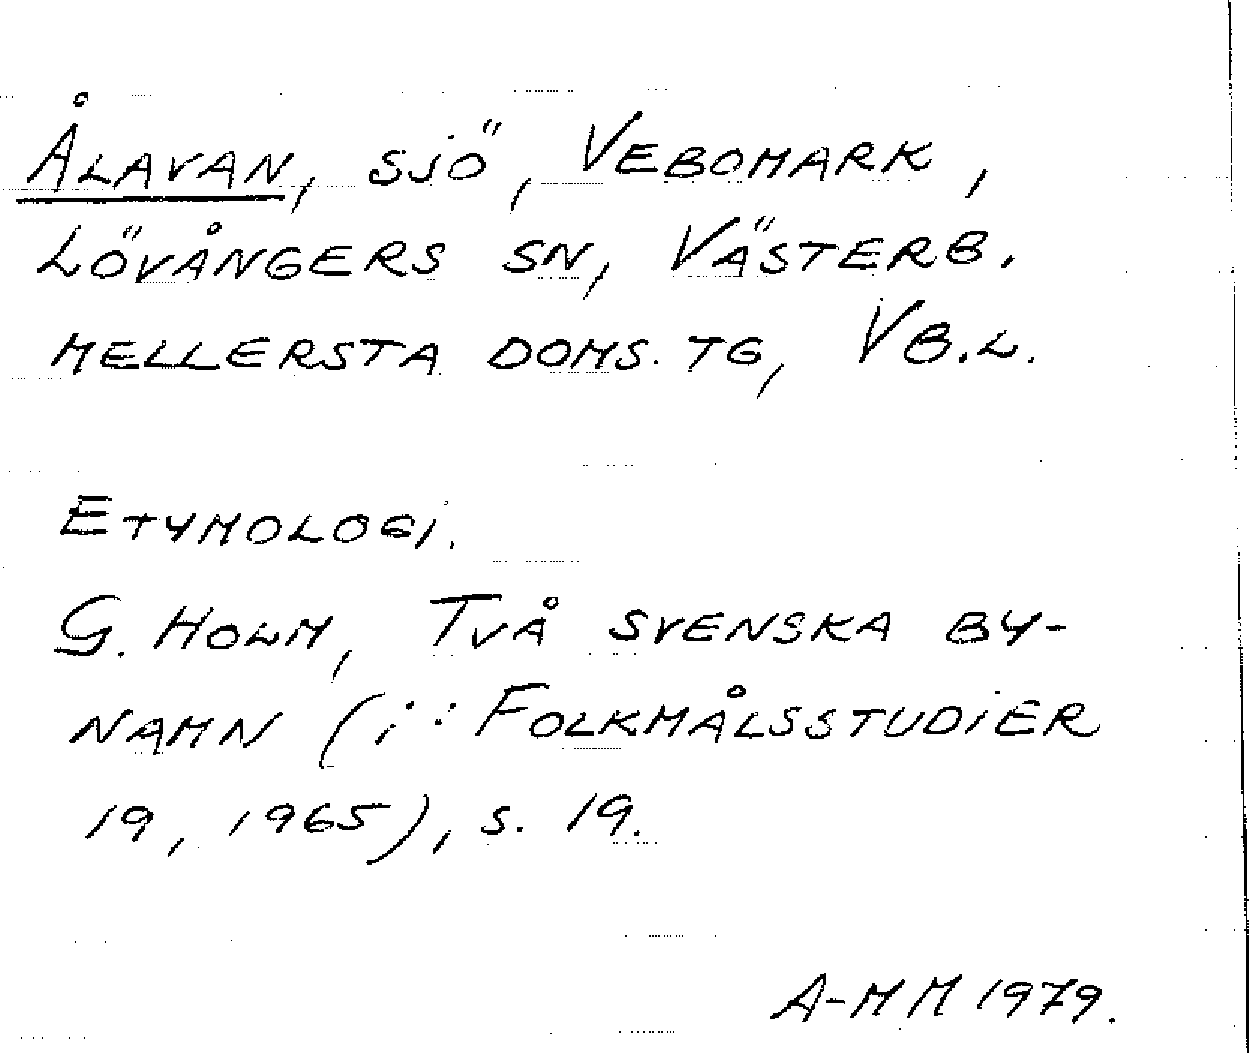 ÅLAVAN, SJÖ, VEBOMARK,
LÖVÅNGERS SN, VÄSTERB.
MELLERSTA DOMS. TG, VB.L.
ETYMOLOGI.
G. HOLM, TVÅ SVENSKA BY-
NAMN (i: FOLKMÅLSSTUDIER
19, 1965), S. 19.
A-MM 1979.